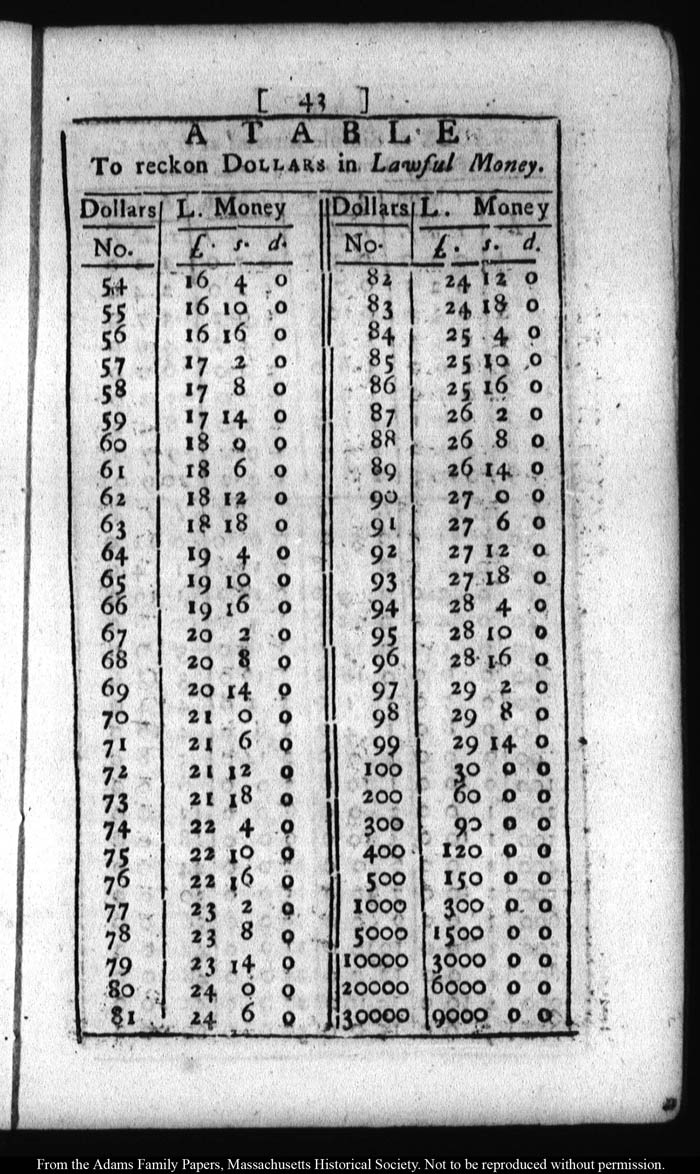 [ 43 ]
A TABLE
To reckon DOLLARS in Lawful Money.
Dollars L. Money Dollars L. Money
No. £. s. d. No. £. s. d.
54 16 4 0 82 24 12 0
55 16 10 0 83 24 18 0
56 16 16 0 84 25 4 0
57 17 2 0 85 25 10 0
58 17 8 0 86 25 16 0
59 17 14 0 87 26 2 0
60 18 0 0 88 26 8 0
61 18 6 0 89 26 14 0
62 18 12 0 90 27 0 0
63 18 18 0 91 27 6 0
64 19 4 0 92 27 12 0
65 19 10 0 93 27 18 0
66 19 16 0 94 28 4 0
67 20 2 0 95 28 10 0
68 20 8 0 96 28 16 0
69 20 14 0 97 29 2 0
70 21 0 0 98 29 8 0
71 21 6 0 99 29 14 0
72 21 12 0 100 30 0 0
73 21 18 0 200 60 0 0
74 22 4 0 300 90 0 0
75 22 10 0 400 120 0 0
76 22 16 0 500 150 0 0
77 23 2 0 1000 300 0 0
78 23 8 0 5000 1500 0 0
79 23 14 0 10000 3000 0 0
80 24 0 0 20000 6000 0 0
81 24 6 0 30000 9000 0 0
From the Adams Family Papers, Massachusetts Historical Society. Not to be reproduced without permission.